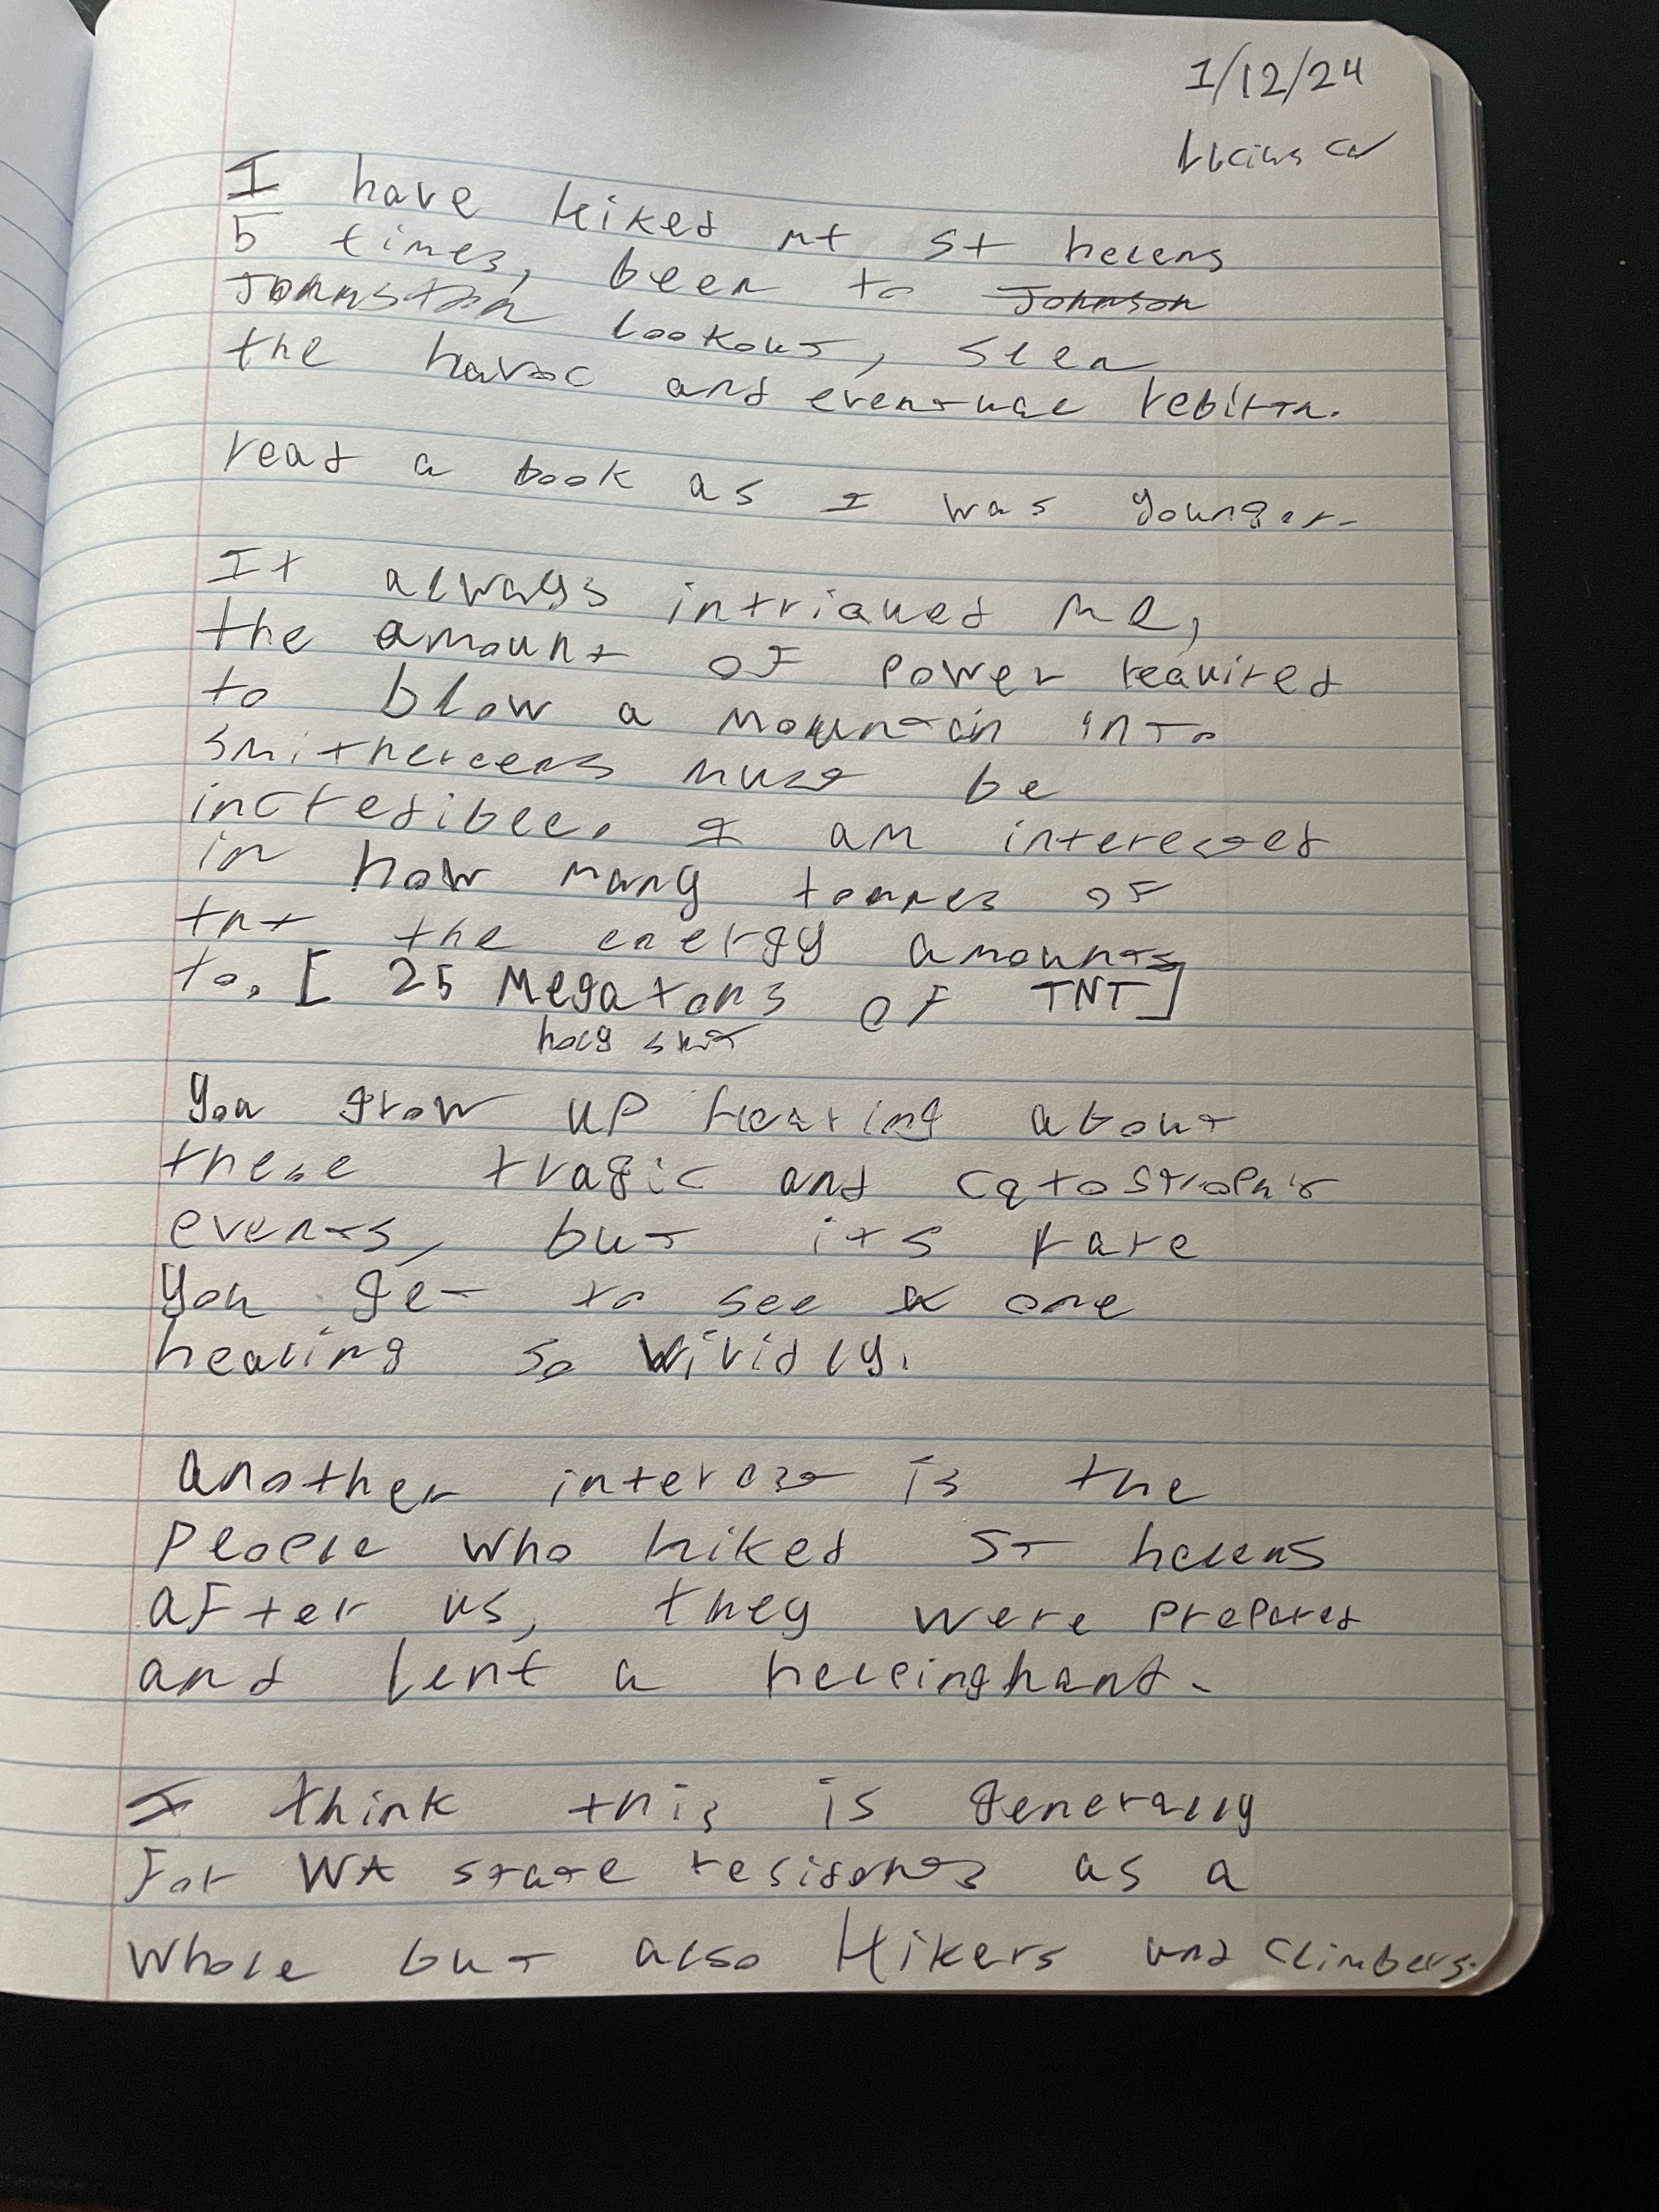 1/12/24
Lucius
I have hiked mt St helens
5 times, been to Johnson
Johnston lookout, seen
the havoc and eventual rebirth.
read a book as I was younger.
It always intriqued me,
the amount of power required
to blow a mountain into
smithereens must be
incredible. I am interested
in how many tonnes of
tnt the energy amounts
to. [ 25 Megatons of TNT]
holy shit
You grow up hearing about
these tragic and catostrophic
events, but its rare
you get to see one
healing so vividly.
another interest is the
people who hiked St helens
after us, they were prepared
and lent a helpinghand.
I think this is generally
For WA state residents as a
whole but also Hikers and climbers.